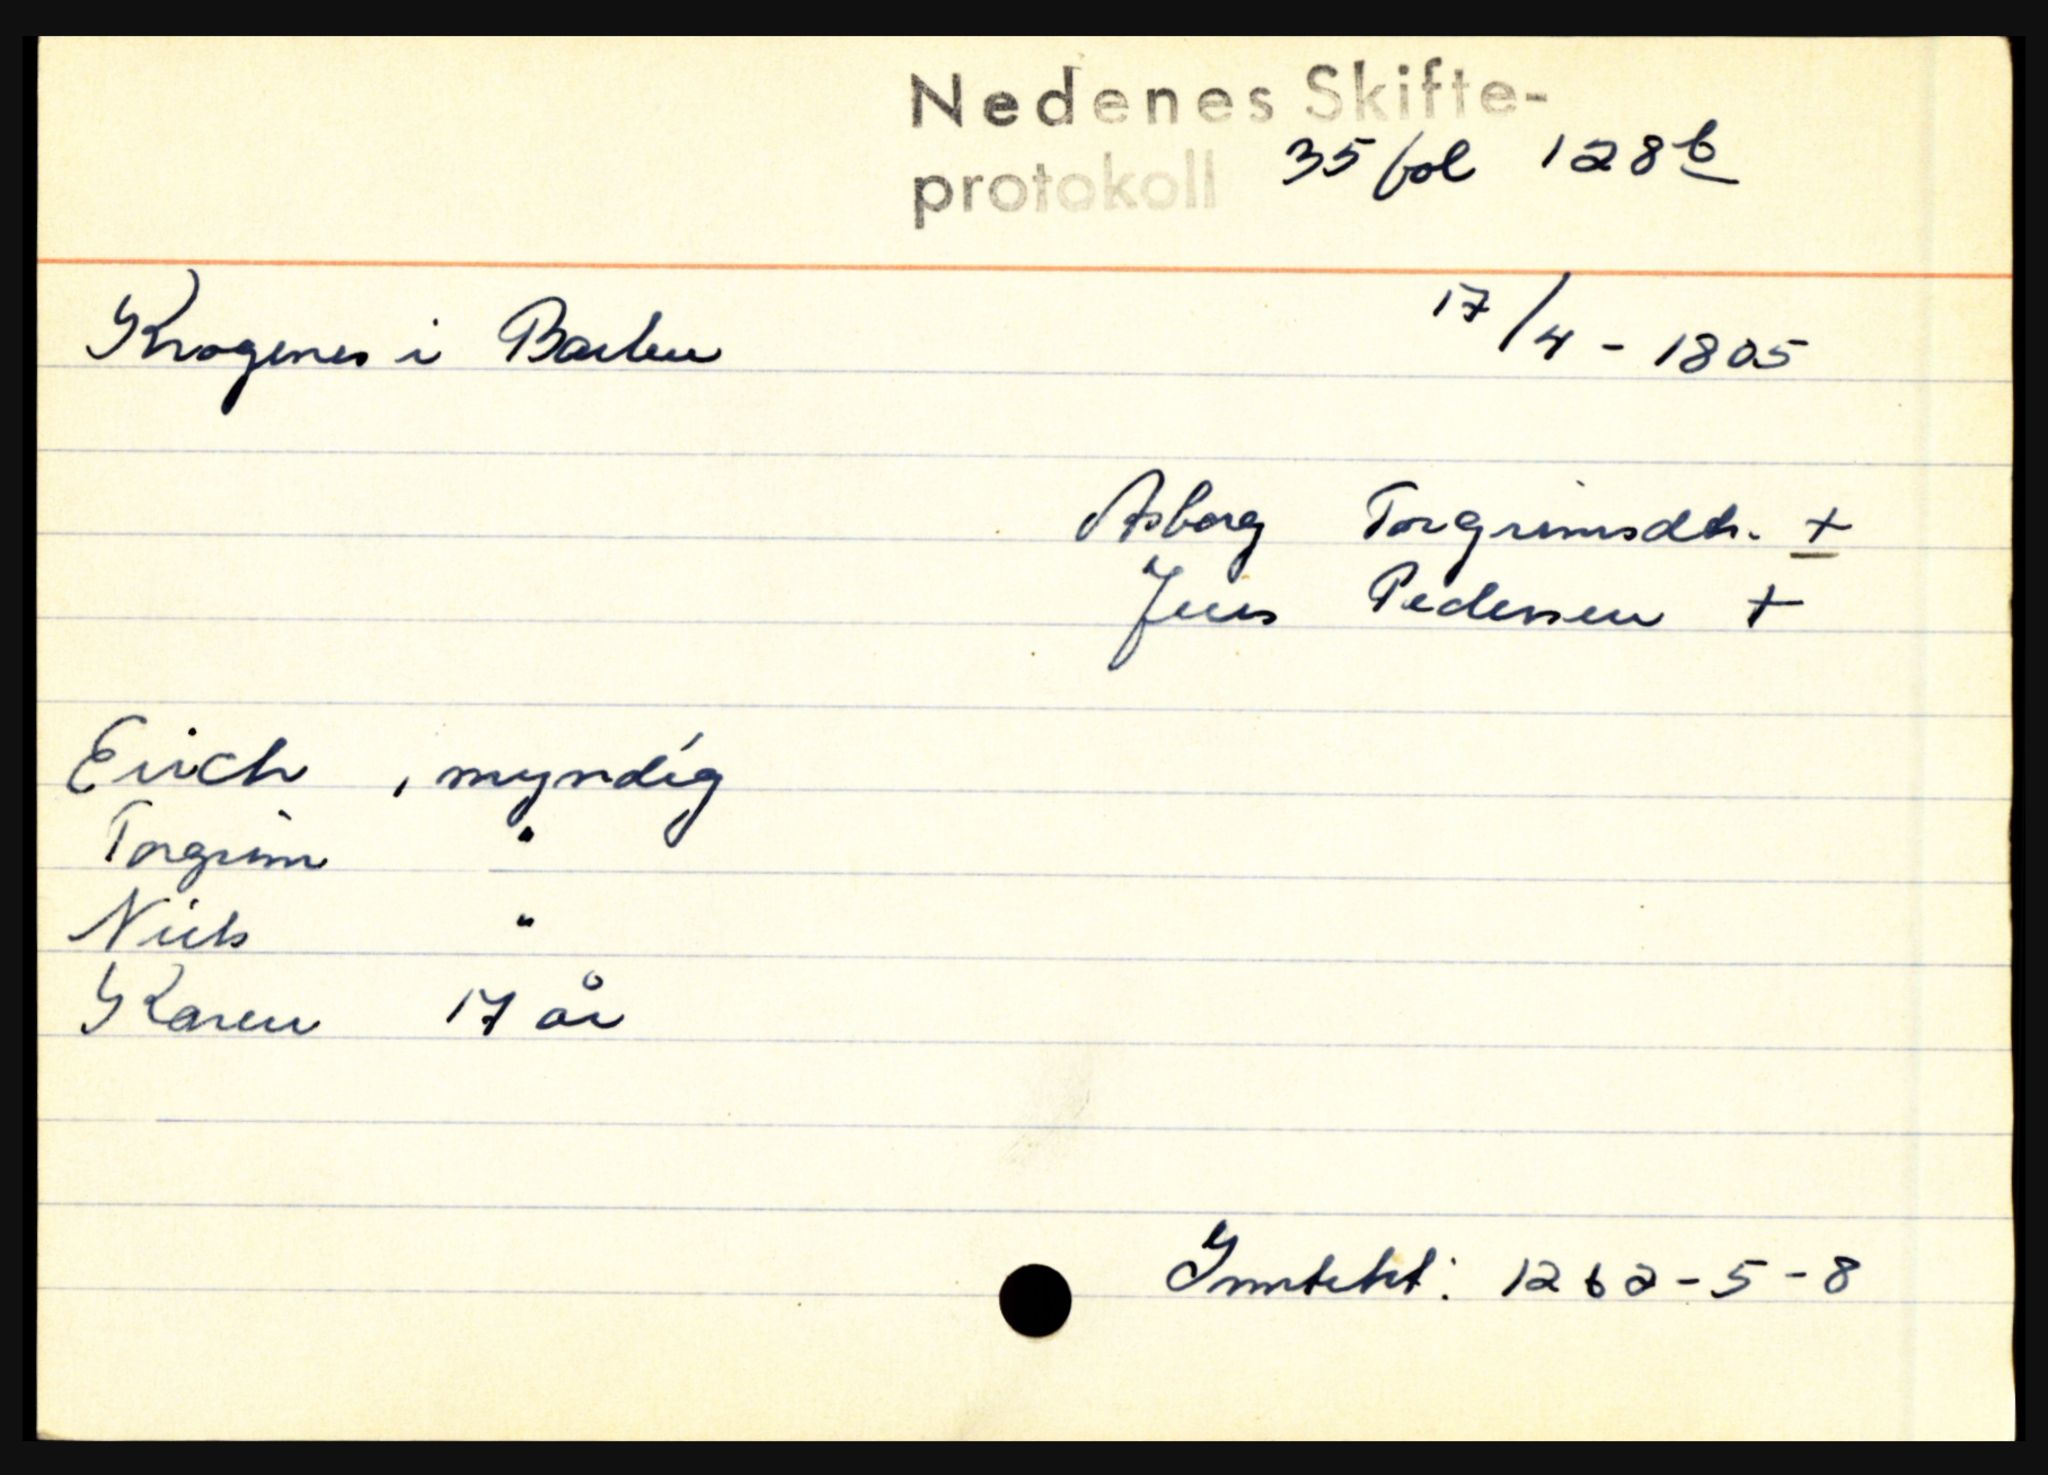 Nedenes Skifte-
protokoll 35 fol 128b
Krogenes i Barbu 17/4 - 1805
Asborg Torgrimsdtr. +
Jens Pedersen +
Erich , myndig
Torgrim "
Niels "
Karen 17 år
Inntekt: 1262-5-8